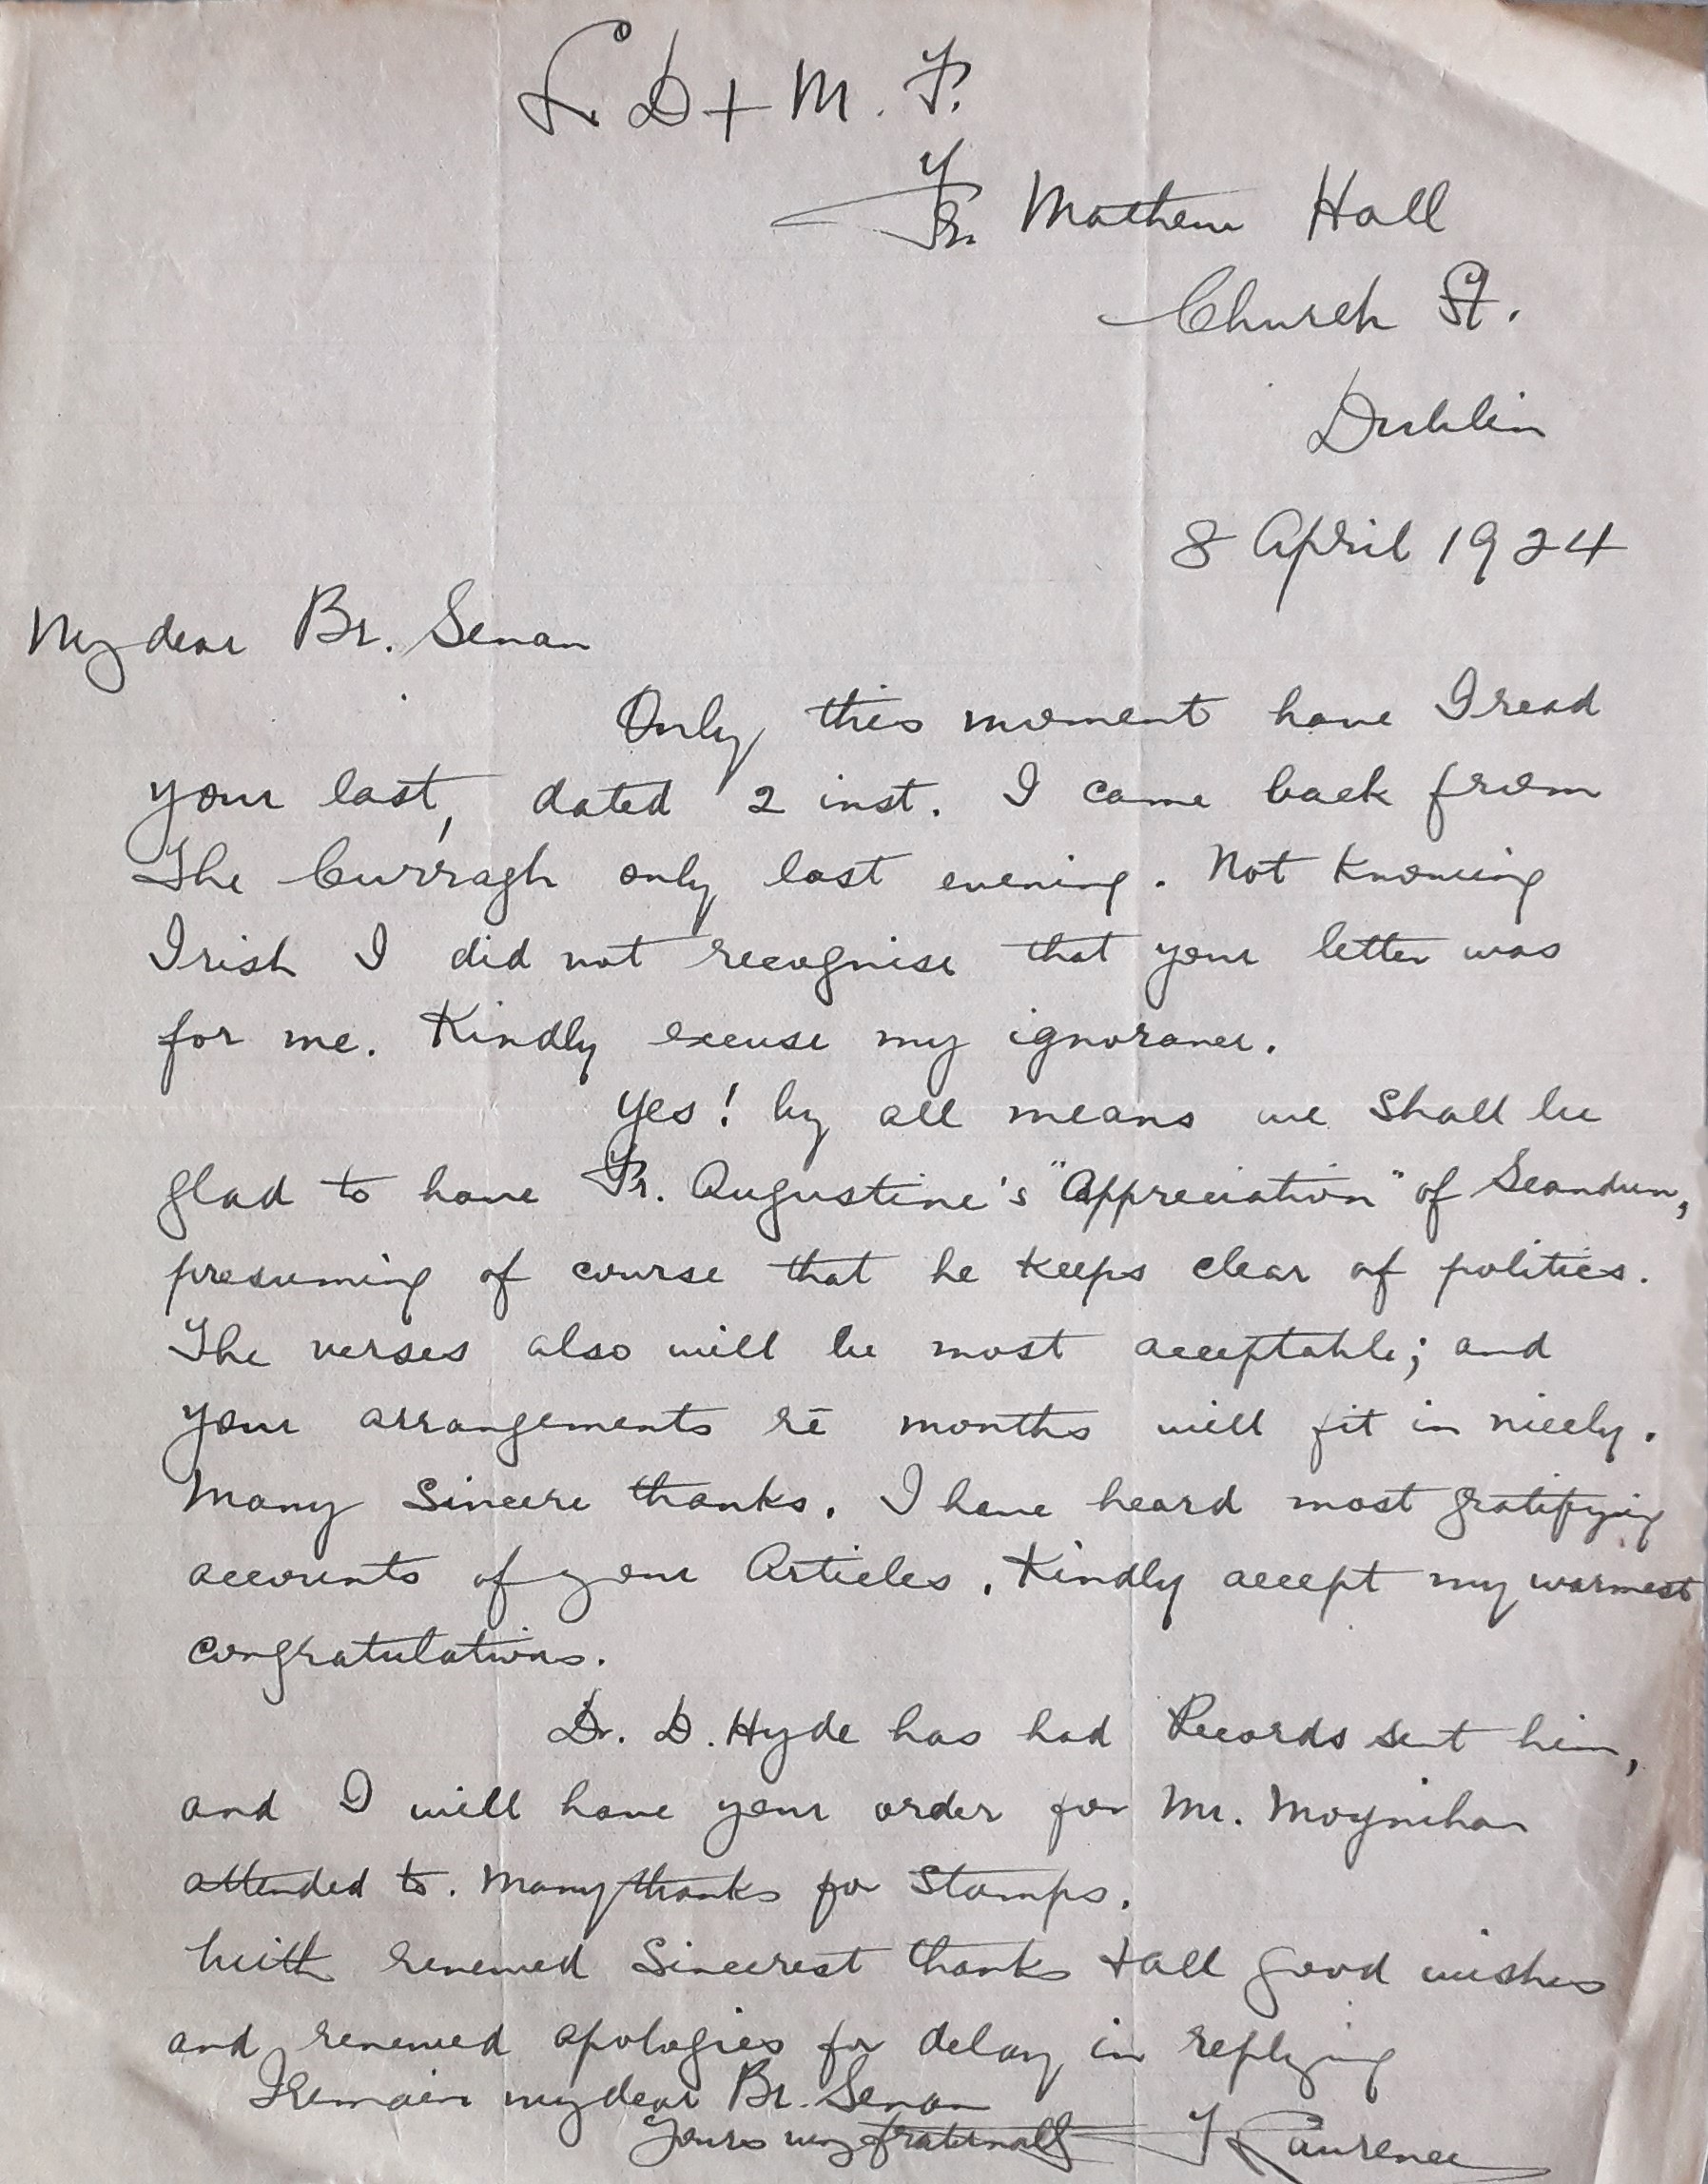 L. D + M. F.
Fr. Mathew Hall
Church St.
Dublin
8 April 1924
My dear Br. Senan
Only this moment have I read
your last, dated 2 inst. I came back from
The Curragh only last evening. Not knowing
Irish I did not recognise that your letter was
for me. Kindly excuse my ignorance.
Yes! by all means we shall be
glad to have Fr. Augustine's "Appreciation" of Seandun,
presuming of course that he keeps clear of politics.
The verses also will be most acceptable; and
your arrangements re months will fit in nicely.
Many sincere thanks. I have heard most gratifying
accounts of your Articles. Kindly accept my warmest
congratulations.
Dr. D. Hyde has had Records sent him,
and I will have your order for Mr. Moynihan
attended to. Many thanks for stamps.
With renewed sincerest thanks + all good wishes
and renewed apologies for delay in replying
I remain my dear Br. Senan
Yours very fraternally Laurence